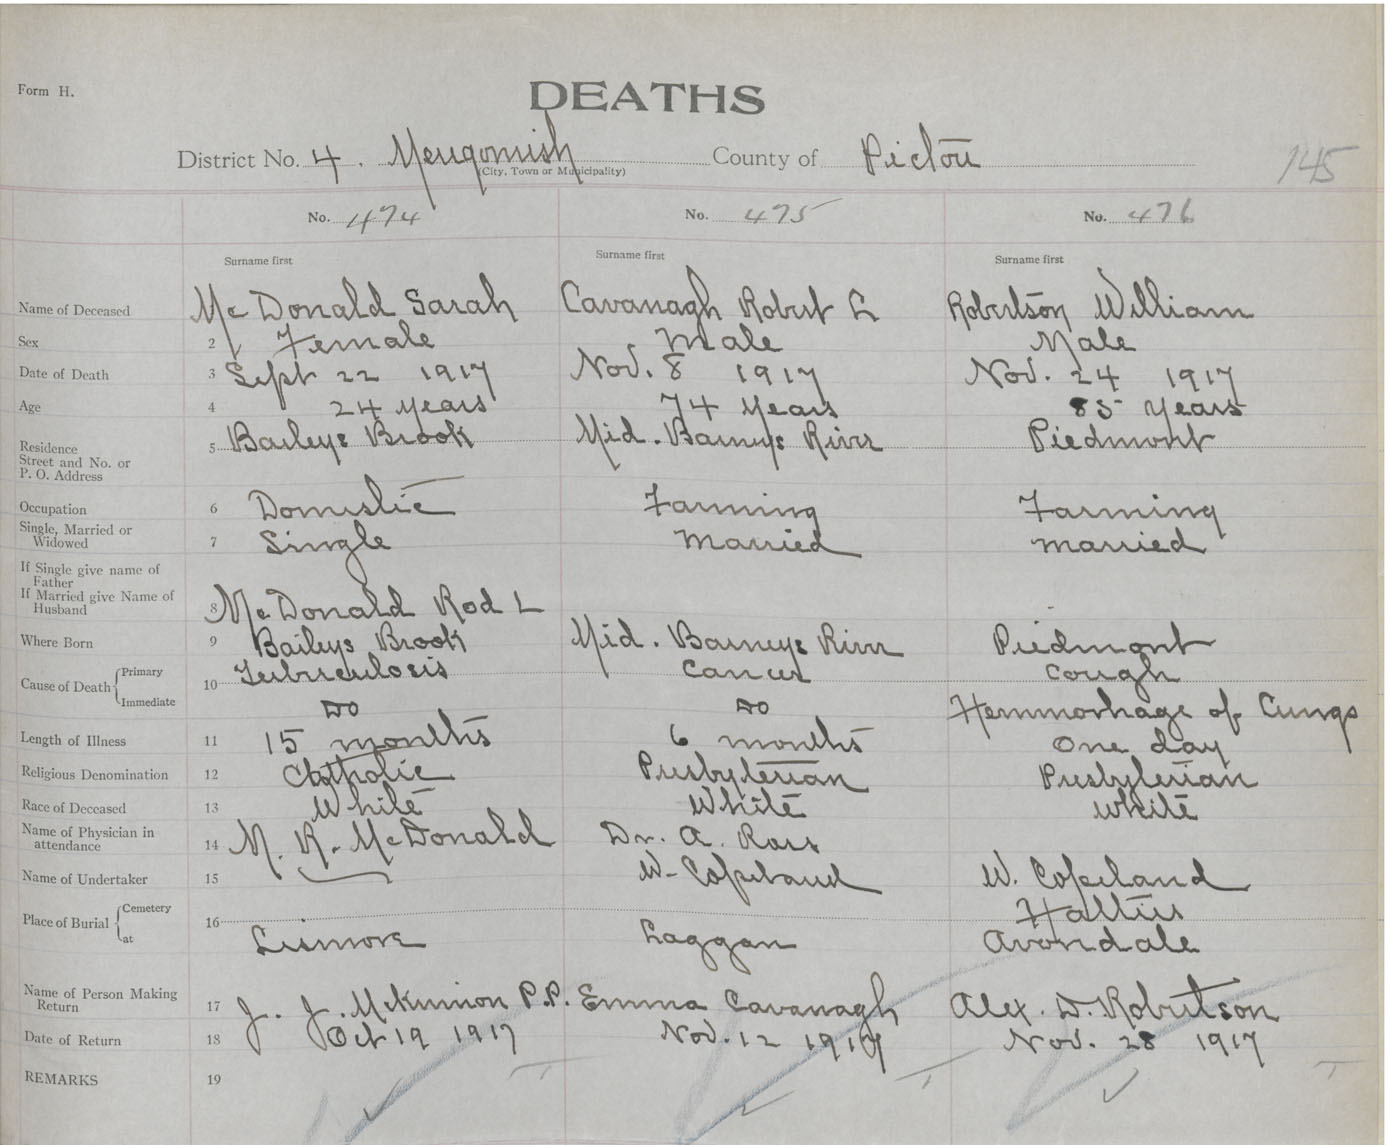 Form H.
DEATHS
District No. 4. Merigomish County of Pictou
(City, Town or Municipality)
145
No. 474 No. 475 No. 476
Surname first Surname first Surname first
Name of Deceased McDonald Sarah Cavanagh Robert L Robertson William
Sex 2 Female Male Male
Date of Death 3 Sept 22 1917 Nov. 8 1917 Nov. 24 1917
Age 4 24 years 74 years 85 years
Residence
Street and No. or
P. O. Address 5 Baileys Brook Mid. Barneys River Piedmont
Occupation 6 Domestic Farming Farming
Single, Married or
Widowed 7 Single Married Married
If Single give name of
Father
If Married give Name of
Husband 8 McDonald Rod L
Where Born 9 Baileys Brook Mid. Barneys River Piedmont
Cause of Death Primary 10 Tuberculosis Cancer Cough
Immediate Do Do Hemmorhage of Lungs
Length of Illness 11 15 months 6 months One day
Religious Denomination 12 Catholic Presbyterian Presbyterian
Race of Deceased 13 White White White
Name of Physician in
attendance 14 M. R. McDonald Dr. A. Ross
Name of Undertaker 15 W. Copeland W. Copeland
Place of Burial Cemetery 16 Hatties
at Lismore Laggan Avondale
Name of Person Making
Return 17 J. J. McKinnon P.P. Emma Cavanagh Alex. D. Robertson
Date of Return 18 Oct 19 1917 Nov. 12 1917 Nov. 28 1917
REMARKS 19